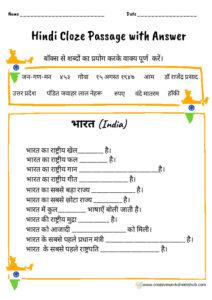 Name: Date:
Hindi Cloze Passage with Answer
बॉक्स से शब्दों का प्रयोग करके वाक्य पूर्ण करें।
जन-गण-मन ४५३ गोवा १५ अगस्त १९४७ आम डॉ राजेंद्र प्रसाद
उत्तर प्रदेश पंडित जवाहर लाल नेहरू रुपए वंदे मातरम हॉकी
भारत (India)
भारत का राष्ट्रीय खेल है।
भारत का राष्ट्रीय फल है।
भारत का राष्ट्रीय गान है।
भारत का राष्ट्रीय गीत है।
भारत का सबसे बड़ा राज्य है।
भारत का सबसे छोटा राज्य है।
भारत में कुल भाषाएँ बोली जाती है।
भारत की राष्ट्रीय मुद्रा है।
भारत को आजादी को मिली।
भारत के सबसे पहले प्रधान मंत्री है।
भारत के सबसे पहले राष्ट्रपति है।
www.creativeworksheetshub.com